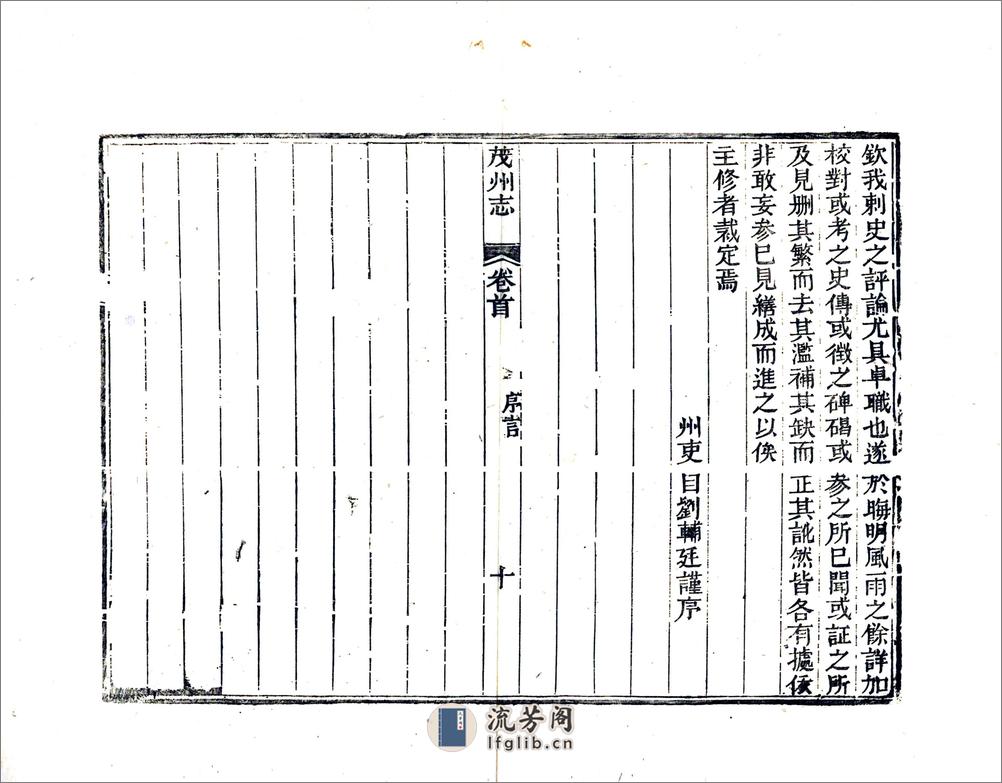 欽我刺史之評論尤具卓職也遂於晦明風雨之餘詳加
校對或考之史傳或徴之碑碣或參之所已聞或証之所
及見删其繁而去其濫補其缺而正其訛然皆各有據依
非敢妄參已見繕成而進之以俟
主修者裁定焉
州吏目劉輔廷謹序
茂州志 卷首 序言 十
流芳阁
lfglib.cn